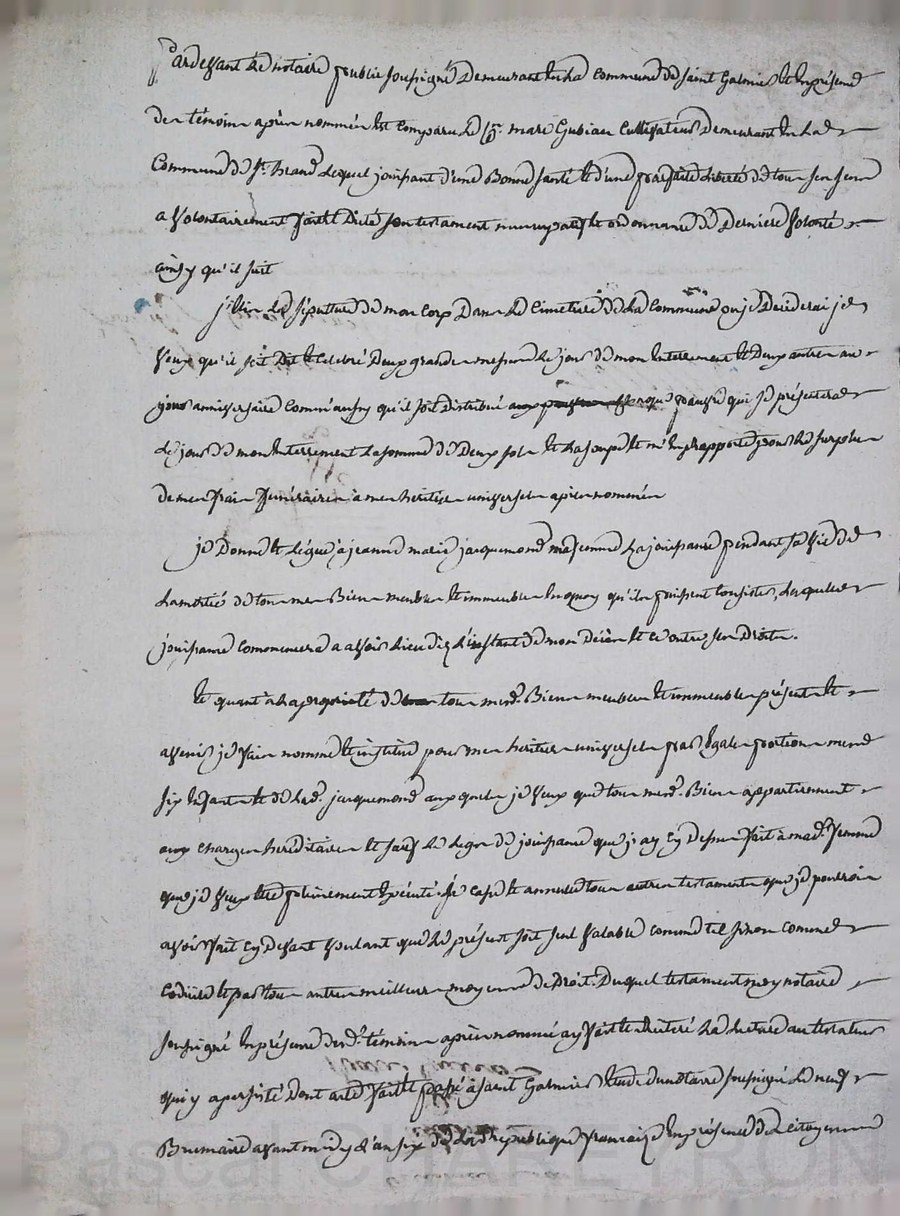 Pardevant le notaire public soussigné demeurant en la commune de saint Galmier et en présence
des témoins après nommés est comparu le Cn. marc Gubian Cultivateur demeurant en la
Commune de St. médard Lequel jouissant d'une Bonne santé et d'une parfaite liberté de tous ses sens
a volontairement fait et dicté son testament nuncupatif et ordonnance de Derniere volonté
ainsy qu'il suit
j'élis la sépulture de mon corp dans le Cimetiere de la Commune ou je décéderai je
veux qu'il soit dit et celebré Deux grandes messes le jour de mon Enterrement et Deux autres au
jour anniversaire comm'aussy qu'il soit distribué pauvre qui se présentera
le jour de mon Enterrement la somme de Deux sols et la soupe et m'en rapporte pour le surplus
de mes frais funéraires a mes heritiers universels après nommés
je Donne et Legue a jeanne marie jacquemond ma femme La jouissance pendant sa vie de
La moitié de tous mes Biens meubles et immeubles en quoy qu'ils puissent consister, Laquelle
jouissance commencera a avoir lieu dez l'instant de mon décès et ce outre ses Droits.
Et quant a la propriété de tous mesd. Biens meubles et immeubles présents et
avenir je fais nomme et institue pour mes heritiers universels par égales portions mes
six Enfants et de lad. jacquemond auxquels je veux que tous mesd. Biens appartiennent
aux charges hereditaires et sauf le legs de jouissance que j'ay cy Dessus fait a mad. femme
que je veux être pleinement exécuté. je casse et annulle tous autres testaments que je pourrois
avoir fait cy Devant voulant que le présent soit seul valable comme tel sinon comme
Codicile et par tous autres meilleurs moyens de Droit. Duquel testament moy notaire
soussigné En présence desd. témoins après nommés ay fait et réitéré La Lecture au testateur
qui y a persisté Dont acte fait et passé a saint Galmier Etude du notaire soussigné le neuf
Brumaire avant midy l'an six de la République française En présence des citoyens
Pascal CHAPEYRON